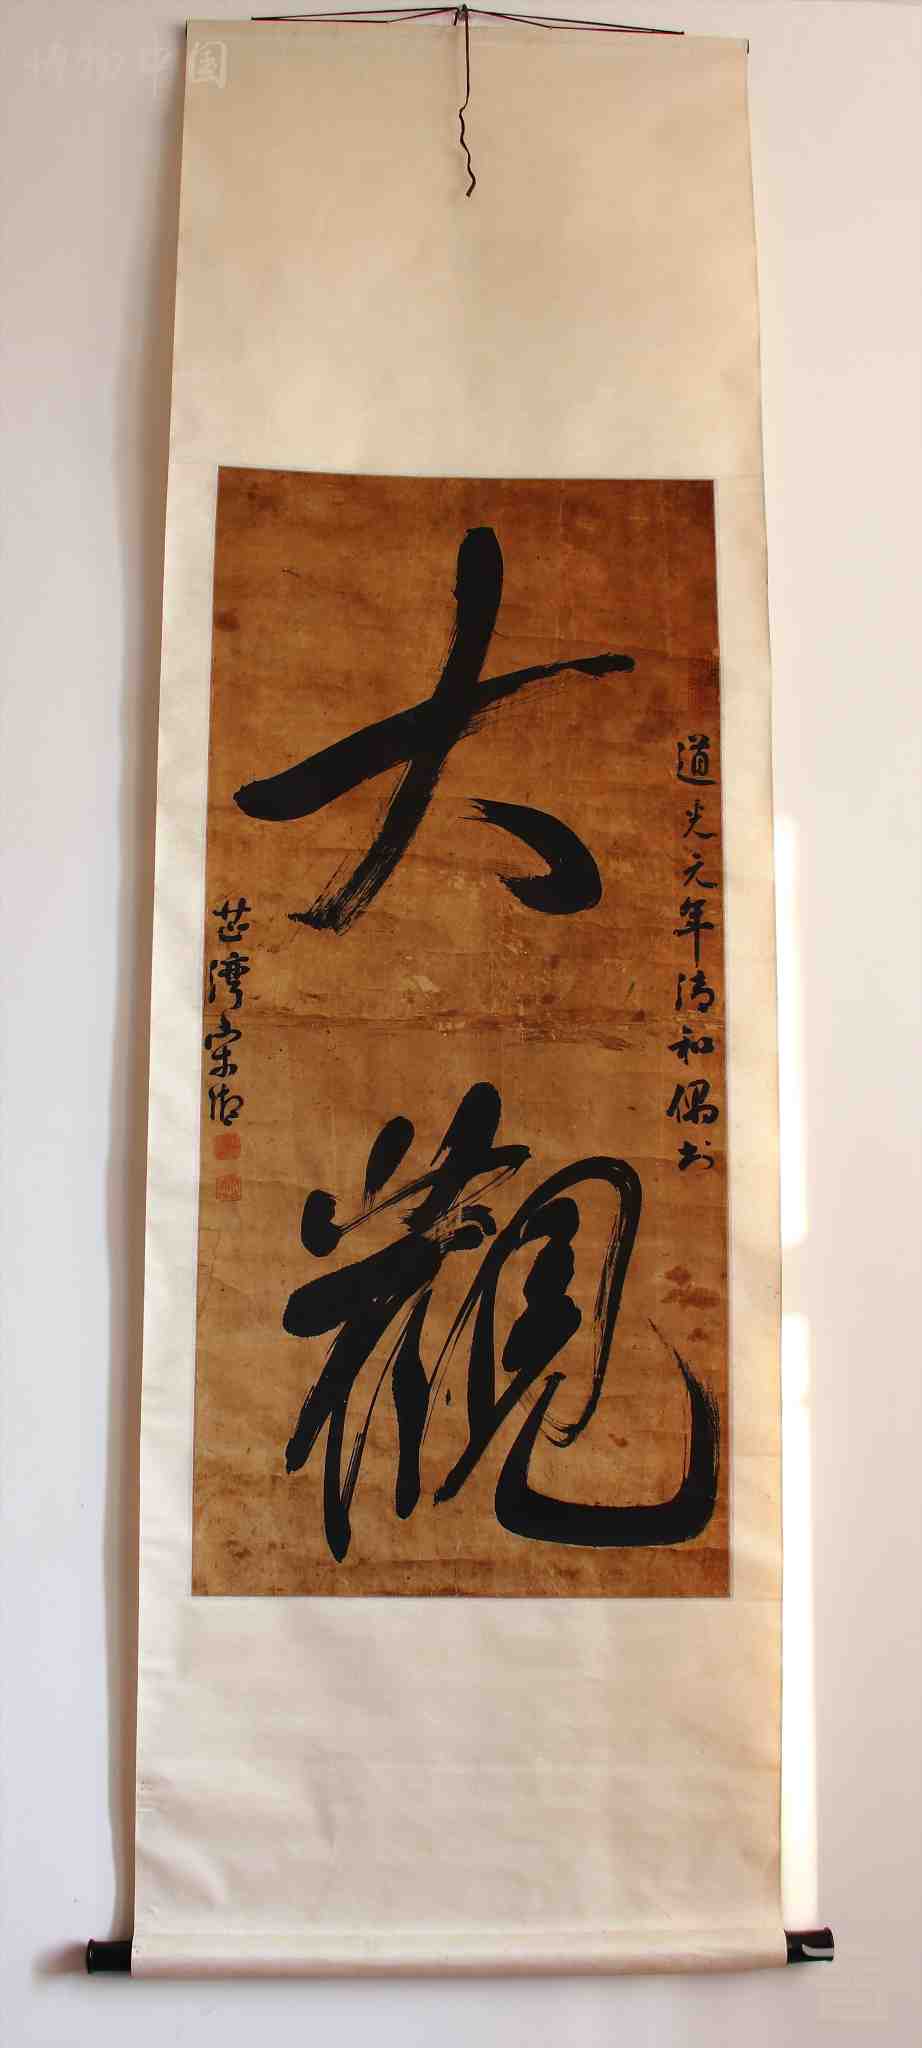 博物中国
道光元年清和偶书
大觀
芷灣宋湘